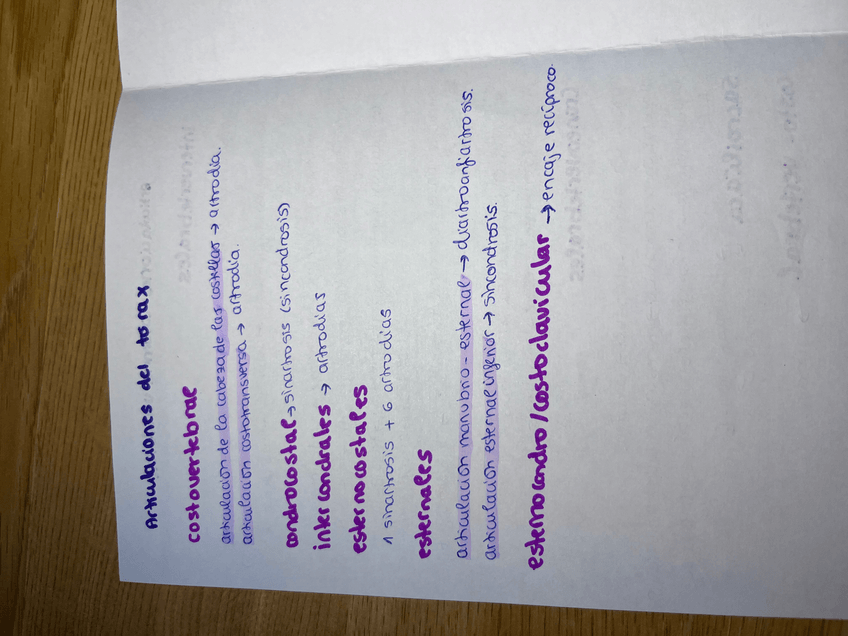 Articulaciones del torax
costovertebrae
articulación de la cabeza de las costillas → artrodia.
articulación costotransversa → artrodia.
condrocostal → sinartrosis (sincondrosis)
intercondrales → artrodias
esternocostales
1 sinartrosis + 6 artrodias
esternales
articulación manubrio-esternal → diartroanfiartrosis.
articulación esternal inferior → sincondrosis.
esternocondro/costoclavicular → encaje recíproco.